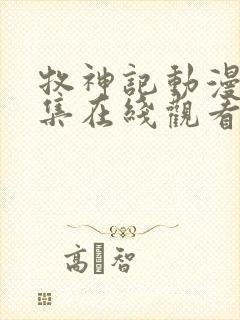 牧神記動漫
集在綫觀看
高智